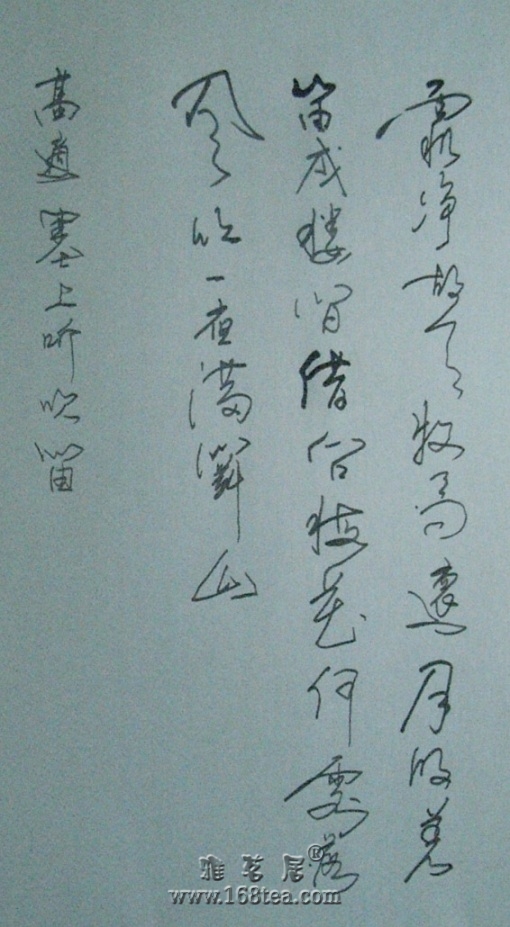 霜净胡天牧马還月明羌
笛戍樓間借问梅花何處落
風吹一夜滿關山
高適塞上听吹笛
雅茗居®
www.168tea.com